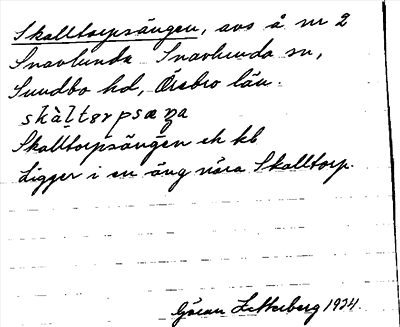 Skalltorpsängen, avs å nr 2
Snavlunda Snavlunda sn,
Sundbo hd, Örebro län.
skàltɵrpsæŋa
Skalltorpsängen ek kb
Ligger i en äng nära Skalltorp.
Göran Zetterberg 1934